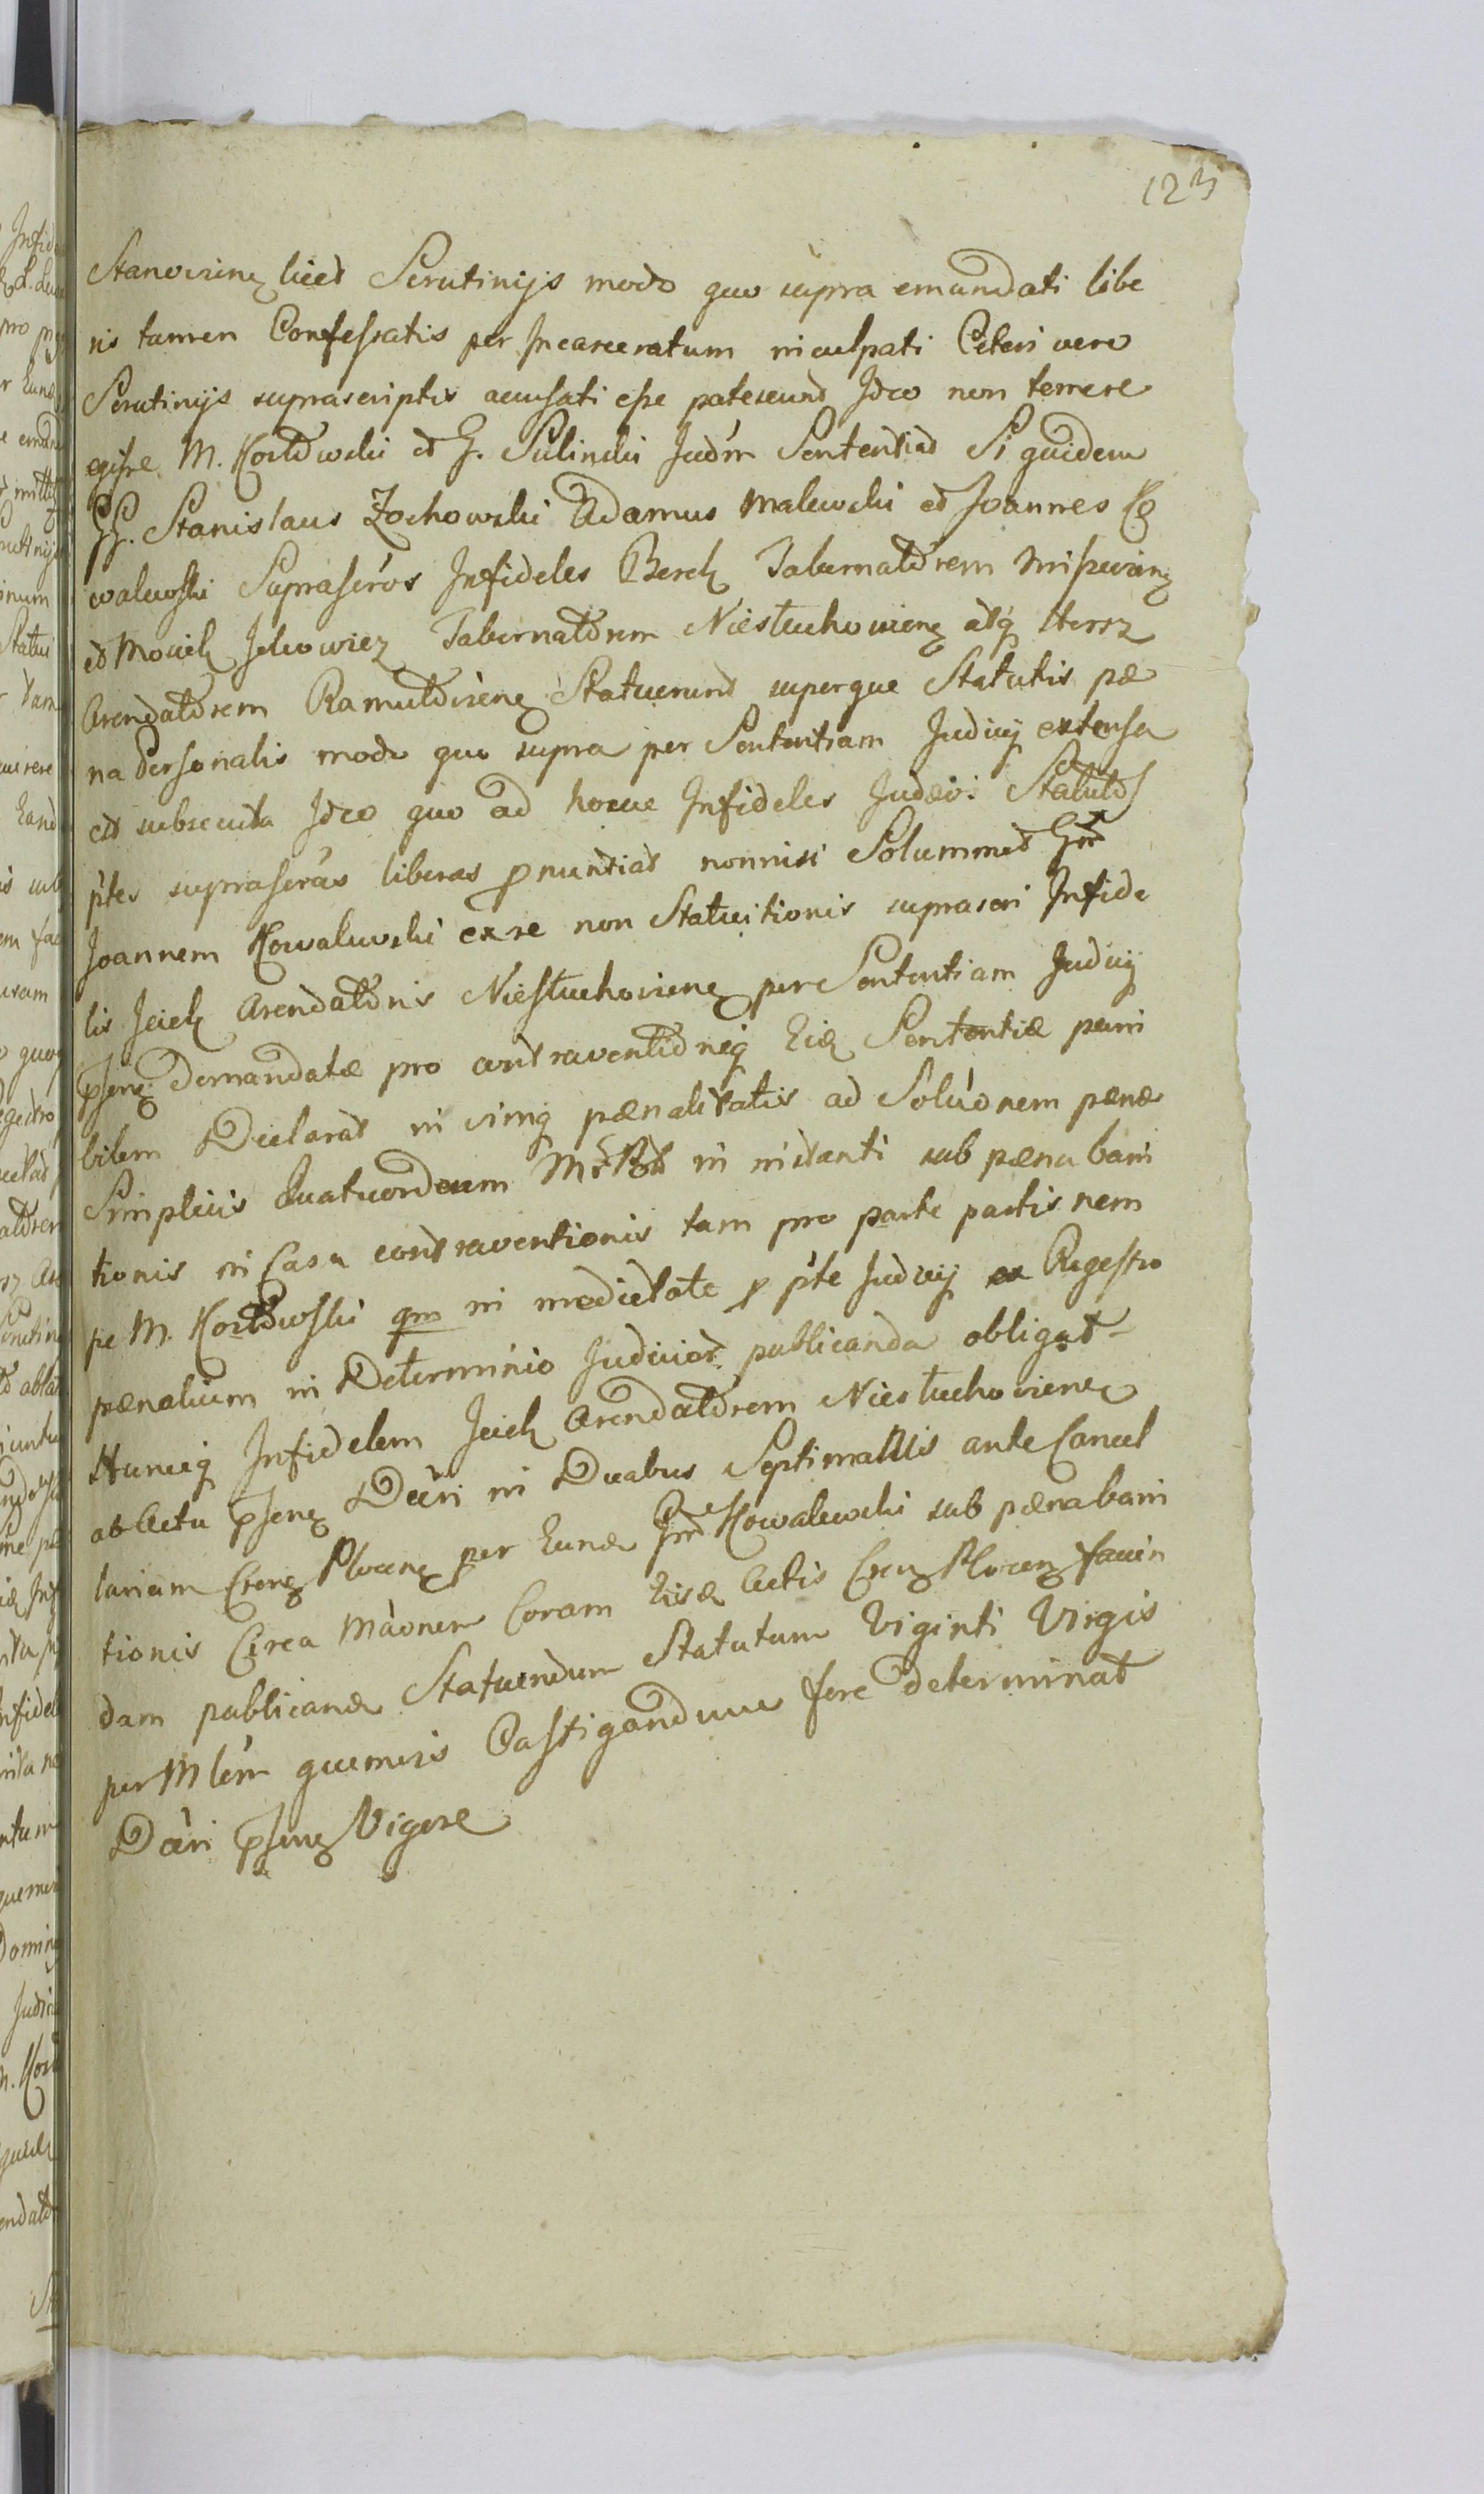 123
Stanoviens licet Scrutinijs modo quo supra emundati libe
ris tamen Confessatis per Incarceratum inculpati Ceteri vero
Scrutinijs suprascriptis accusati esse patescunt Ideo non temere
egisse M. Kosztowski et G. Sulinski Judm Sententiat Si quidem
GG. Stanislaus Zochowski Adamus Malewski et Joannes Ko
walewski Suprascros Infideles Berek Tabernatorem
et Mosiek Tabernatorem Niestuchoviens atq Hersz
Arendatorem Ramutoviens Statuerunt superque Statutis pæ
na Personalis modo quo supra per Sententiam Judicij extensa
est subsecuta Ideo quo ad hosce Infideles Judæos Statutos
ptes suprascras liberas pronuntiat nonnisi Solummet Gm
Joannem Kowalewski ex re non Statuitionis suprascri Infide
lis Jciek Arendatoris Niestuchoviens per Sententiam Judicij
psens Demandatæ pro contraventioneq Ejd Sententiæ puni
bilem Declarat in vimq pænalitatis ad Soluonem pænæ
Simplicis Quatuordecim in instanti sub pæna bani
tionis in Casu contraventionis tam pro parte partis nem
pe M. Kosztowski qm in medietate p pte Judicij ex Regestro
pænalium in Determinio Judicior publicanda obligat
Huncq Infidelem Jciek Arendatorem Niestuchoviens
ab Actu psens Dcri in Duabus Septimanis ante Cancel
lariam Crens Plocens per Eund Gm Kowalewski sub pæna bani
tionis Circa Maonem Coram Eisd Actis Crens Plocens facien
dam publicand Statuendum Statutum Viginti Virgis
per Mlem quemvis Castigandum fore determinat
Dcri psens Vigore